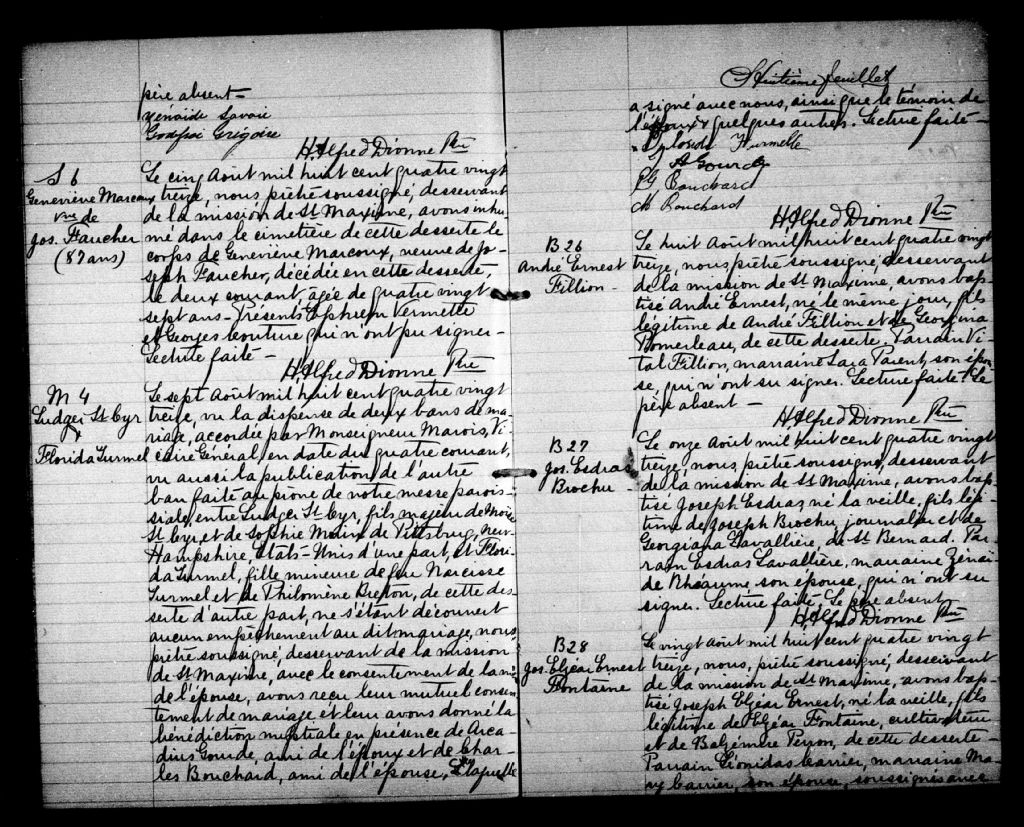 père absent —
Zénaïde Savoie
Godfroi Grégoire
H. Alfred Dionne Ptre
S 6
Geneviève Marcoux
vve de
Jos. Faucher
(87 ans)
Le cinq Août mil huit cent quatre vingt
treize, nous, prêtre soussigné, desservant
de la mission de St Maxime, avons inhu-
mé dans le cimetière de cette desserte le
corps de Geneviève Marcoux, veuve de Jo-
seph Faucher, décédée en cette desserte,
le deux courant, âgée de quatre vingt
sept ans — Présents Ephrem Vermette
et Georges Couture qui n'ont pu signer —
Lecture faite —
H. Alfred Dionne Ptre
M 4
Ludger St Cyr
&
Florida Turmel
Le sept Août mil huit cent quatre vingt
treize, vu la dispense de deux bans de ma-
riage, accordée par Monseigneur Marois, Vi-
caire Général, en date du quatre courant,
vu aussi la publication de l'autre
ban faite au prône de notre messe parois-
siale, entre Ludger St Cyr, fils majeur de Moïse
St Cyr et de Sophie de Pittsburg, New
Hampshire, Etats-Unis d'une part, et Flori-
da Turmel, fille mineure de feu Narcisse
Turmel et de Philomène Breton, de cette des-
serte d'autre part, ne s'étant découvert
aucun empêchement au dit mariage, nous
prêtre soussigné, desservant de la mission
de St Maxime, avec le consentement de la mère
de l'épouse, avons reçu leur mutuel consen-
tement de mariage et leur avons donné la
bénédiction nuptiale en présence de Arca-
dius Gourde, ami de l'époux et de Char-
les Bouchard, ami de l'épouse, laquelle
Huitième feuillet
a signé avec nous, ainsi que le témoin de
l'époux & quelques autres. Lecture faite —
Turmelle
A Gourde
Bouchard
Bouchard
H. Alfred Dionne Ptre
B 26
André Ernest
Fillion —
Le huit Août mil huit cent quatre vingt
treize, nous, prêtre soussigné, desservant
de la mission de St Maxime, avons bap-
tisé André Ernest, né le même jour, fils
légitime de André Fillion et de Georgina
Pomerleau, de cette desserte. Parrain Vi-
tal Fillion, marraine Lara Parent, son épou-
se, qui n'ont su signer. Lecture faite. Le
père absent —
H. Alfred Dionne Ptre
B 27
Jos. Esdras
Brochu —
Le onze Août mil huit cent quatre vingt
treize, nous, prêtre soussigné, desservant
de la mission de St Maxime, avons bap-
tisé Joseph Esdras, né la veille, fils légi-
time de Joseph Brochu, journalier et de
Georgiana Lavallière, de St Bernard. Par-
rain Esdras Lavallière, marraine Zénaï-
de Rhéaume son épouse, qui n'ont su
signer. Lecture faite. Le père absent.
H. Alfred Dionne Ptre
B 28
Jos. Elzéar Ernest
Fontaine
Le vingt Août mil huit cent quatre vingt
treize, nous, prêtre soussigné, desservant
de la mission de St Maxime, avons bap-
tisé Joseph Elzéar Ernest, né la veille, fils
légitime de Elzéar Fontaine, cultivateur
et de Balzémire Perron, de cette desserte —
Parrain Léonidas Carrier, marraine Ma-
ry Carrier, son épouse, soussignés avec